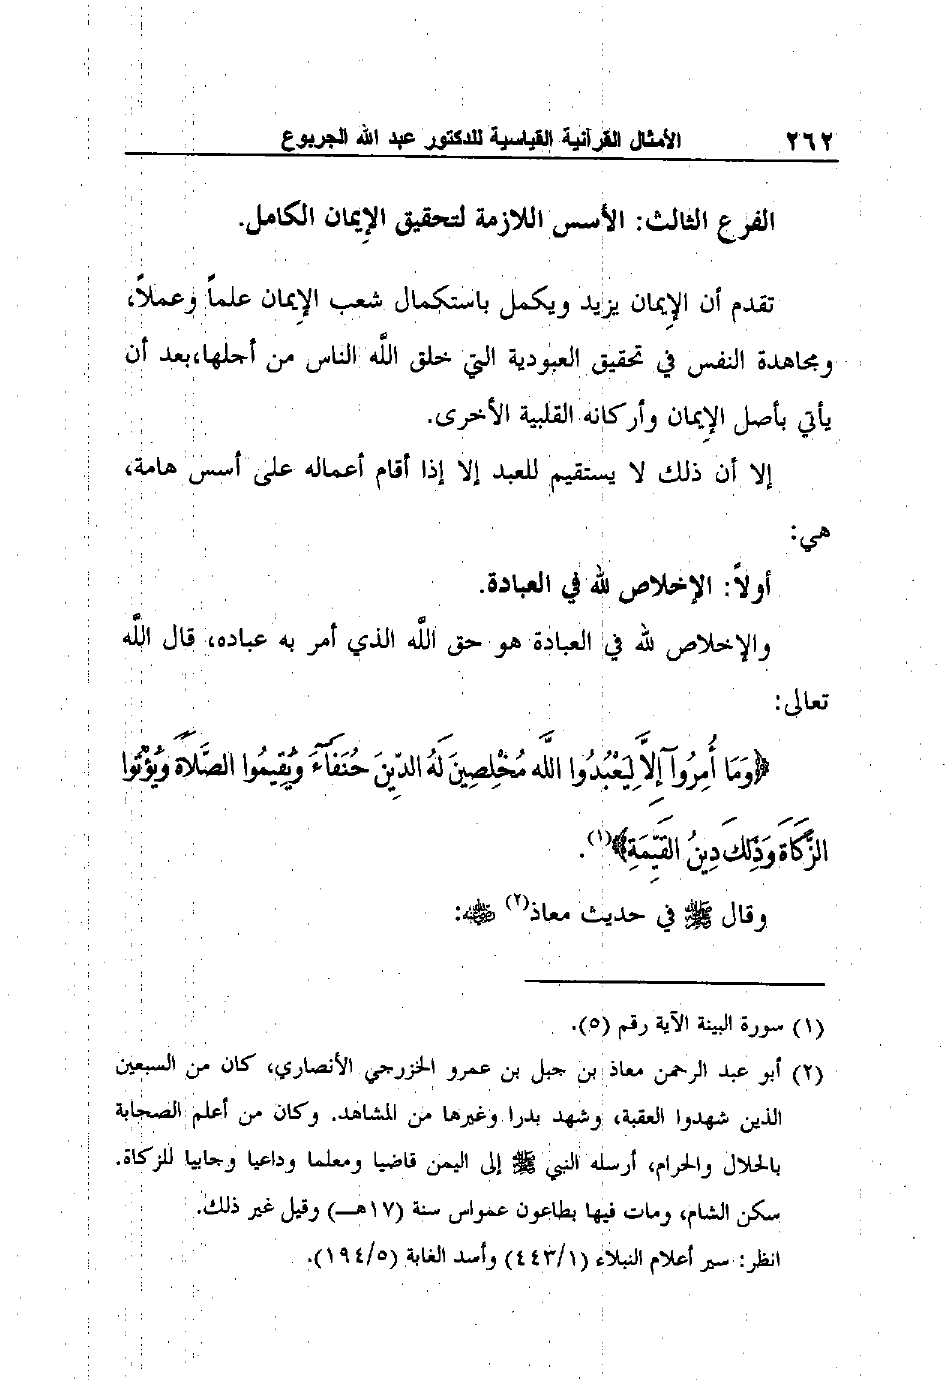 ٢٦٢ الأمثال القرآنية القياسية للدكتور عبد الله الجربوع
الفرع الثالث: الأسس اللازمة لتحقيق الإيمان الكامل.
تقدم أن الإيمان يزيد ويكمل باستكمال شعب الإيمان علماً وعملاً،
ومجاهدة النفس في تحقيق العبودية التي خلق اللَّه الناس من أجلها،بعد أن
يأتي بأصل الإيمان وأركانه القلبية الأخرى.
إلا أن ذلك لا يستقيم للعبد إلا إذا أقام أعماله على أسس هامة،
هي:
أولاً: الإخلاص لله في العبادة.
والإخلاص لله في العبادة هو حق اللَّه الذي أمر به عباده، قال اللَّه
تعالى:
﴿وَمَا أُمِرُوآ إِلاَّ لِيَعْبُدُوا اللَّه مُخْلِصِينَ لَهُ الدِّينَ حُنَفَآءَ وَيُقِيمُوا الصَّلاَةَ وَيُؤْتُوا
الزَّكَاةَ وَذَلِكَ دِينُ القَيِّمَةِ﴾(١).
وقال ﷺ في حديث معاذ(٢) ﵁:
(١) سورة البينة الآية رقم (٥).
(٢) أبو عبد الرحمن معاذ بن جبل بن عمرو الخزرجي الأنصاري، كان من السبعين
الذين شهدوا العقبة، وشهد بدرا وغيرها من المشاهد. وكان من أعلم الصحابة
بالحلال والحرام، أرسله النبي ﷺ إلى اليمن قاضيا ومعلما وداعيا وجابيا للزكاة.
سكن الشام، ومات فيها بطاعون عمواس سنة (١٧هـ) وقيل غير ذلك.
انظر: سير أعلام النبلاء (٤٤٣/١) وأسد الغابة (١٩٤/٥).